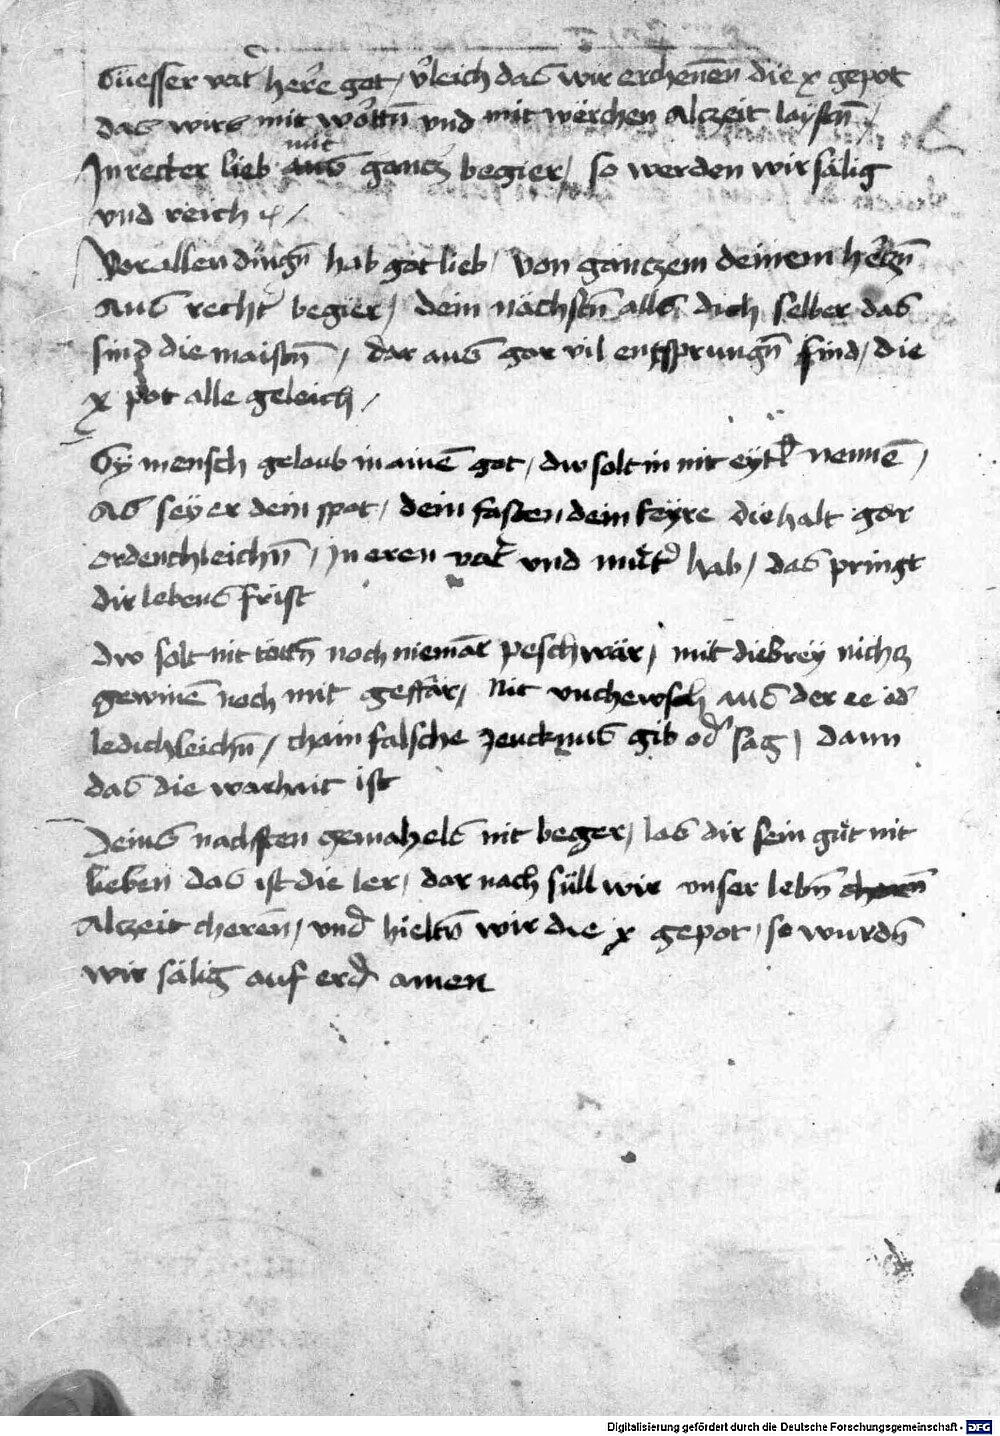 Süesser vat̄ her̄e got / v̄leich das wir erchenēn die x gepot
das wirs mit wortn̄ vnd mit werchen alczeit laystn̄ /
mit
In recter lieb aus gancz begier / so werden wir sälig
vnd reich /
Vor allen dingn̄ hab got lieb / von ganczem deinem herczn̄
aus recht̄ begier / dein nachstn̄ alls dich selber das
sind die maistn̄ / dar aus gor vil entsprungn̄ sind / die
x pot alle geleich /
O̊y mensch geloub in ainē got / dw solt in nit eytl̄ nennē /
als sey er dein spot / dein fasten dein feyre die halt gar
ordenchleichn̄ / In eren vat̄ vnd můt̄ hab / das pringt
dir lebens frist
dw solt nit töttn̄ noch niemār peschwär / mit diebrey nichcz
gewinē noch mit geffär / Nit vnchewsch aus der ee od̄
ledichleichn̄ / chain falsche zeucknus gib od̄ sag / dann
das die warhait ist
Deins nachsten gemahels nit beger / las dir sein gůt nit
lieben das ist die ler / dar nach süll wir vnser lebn̄ cherēn
Alczeit cherēn / vnd̄ hieltn̄ wir die x gepot / so wurdn̄
wir sälig auf erd̄ amen
Digitalisierung gefördert durch die Deutsche Forschungsgemeinschaft - DFG